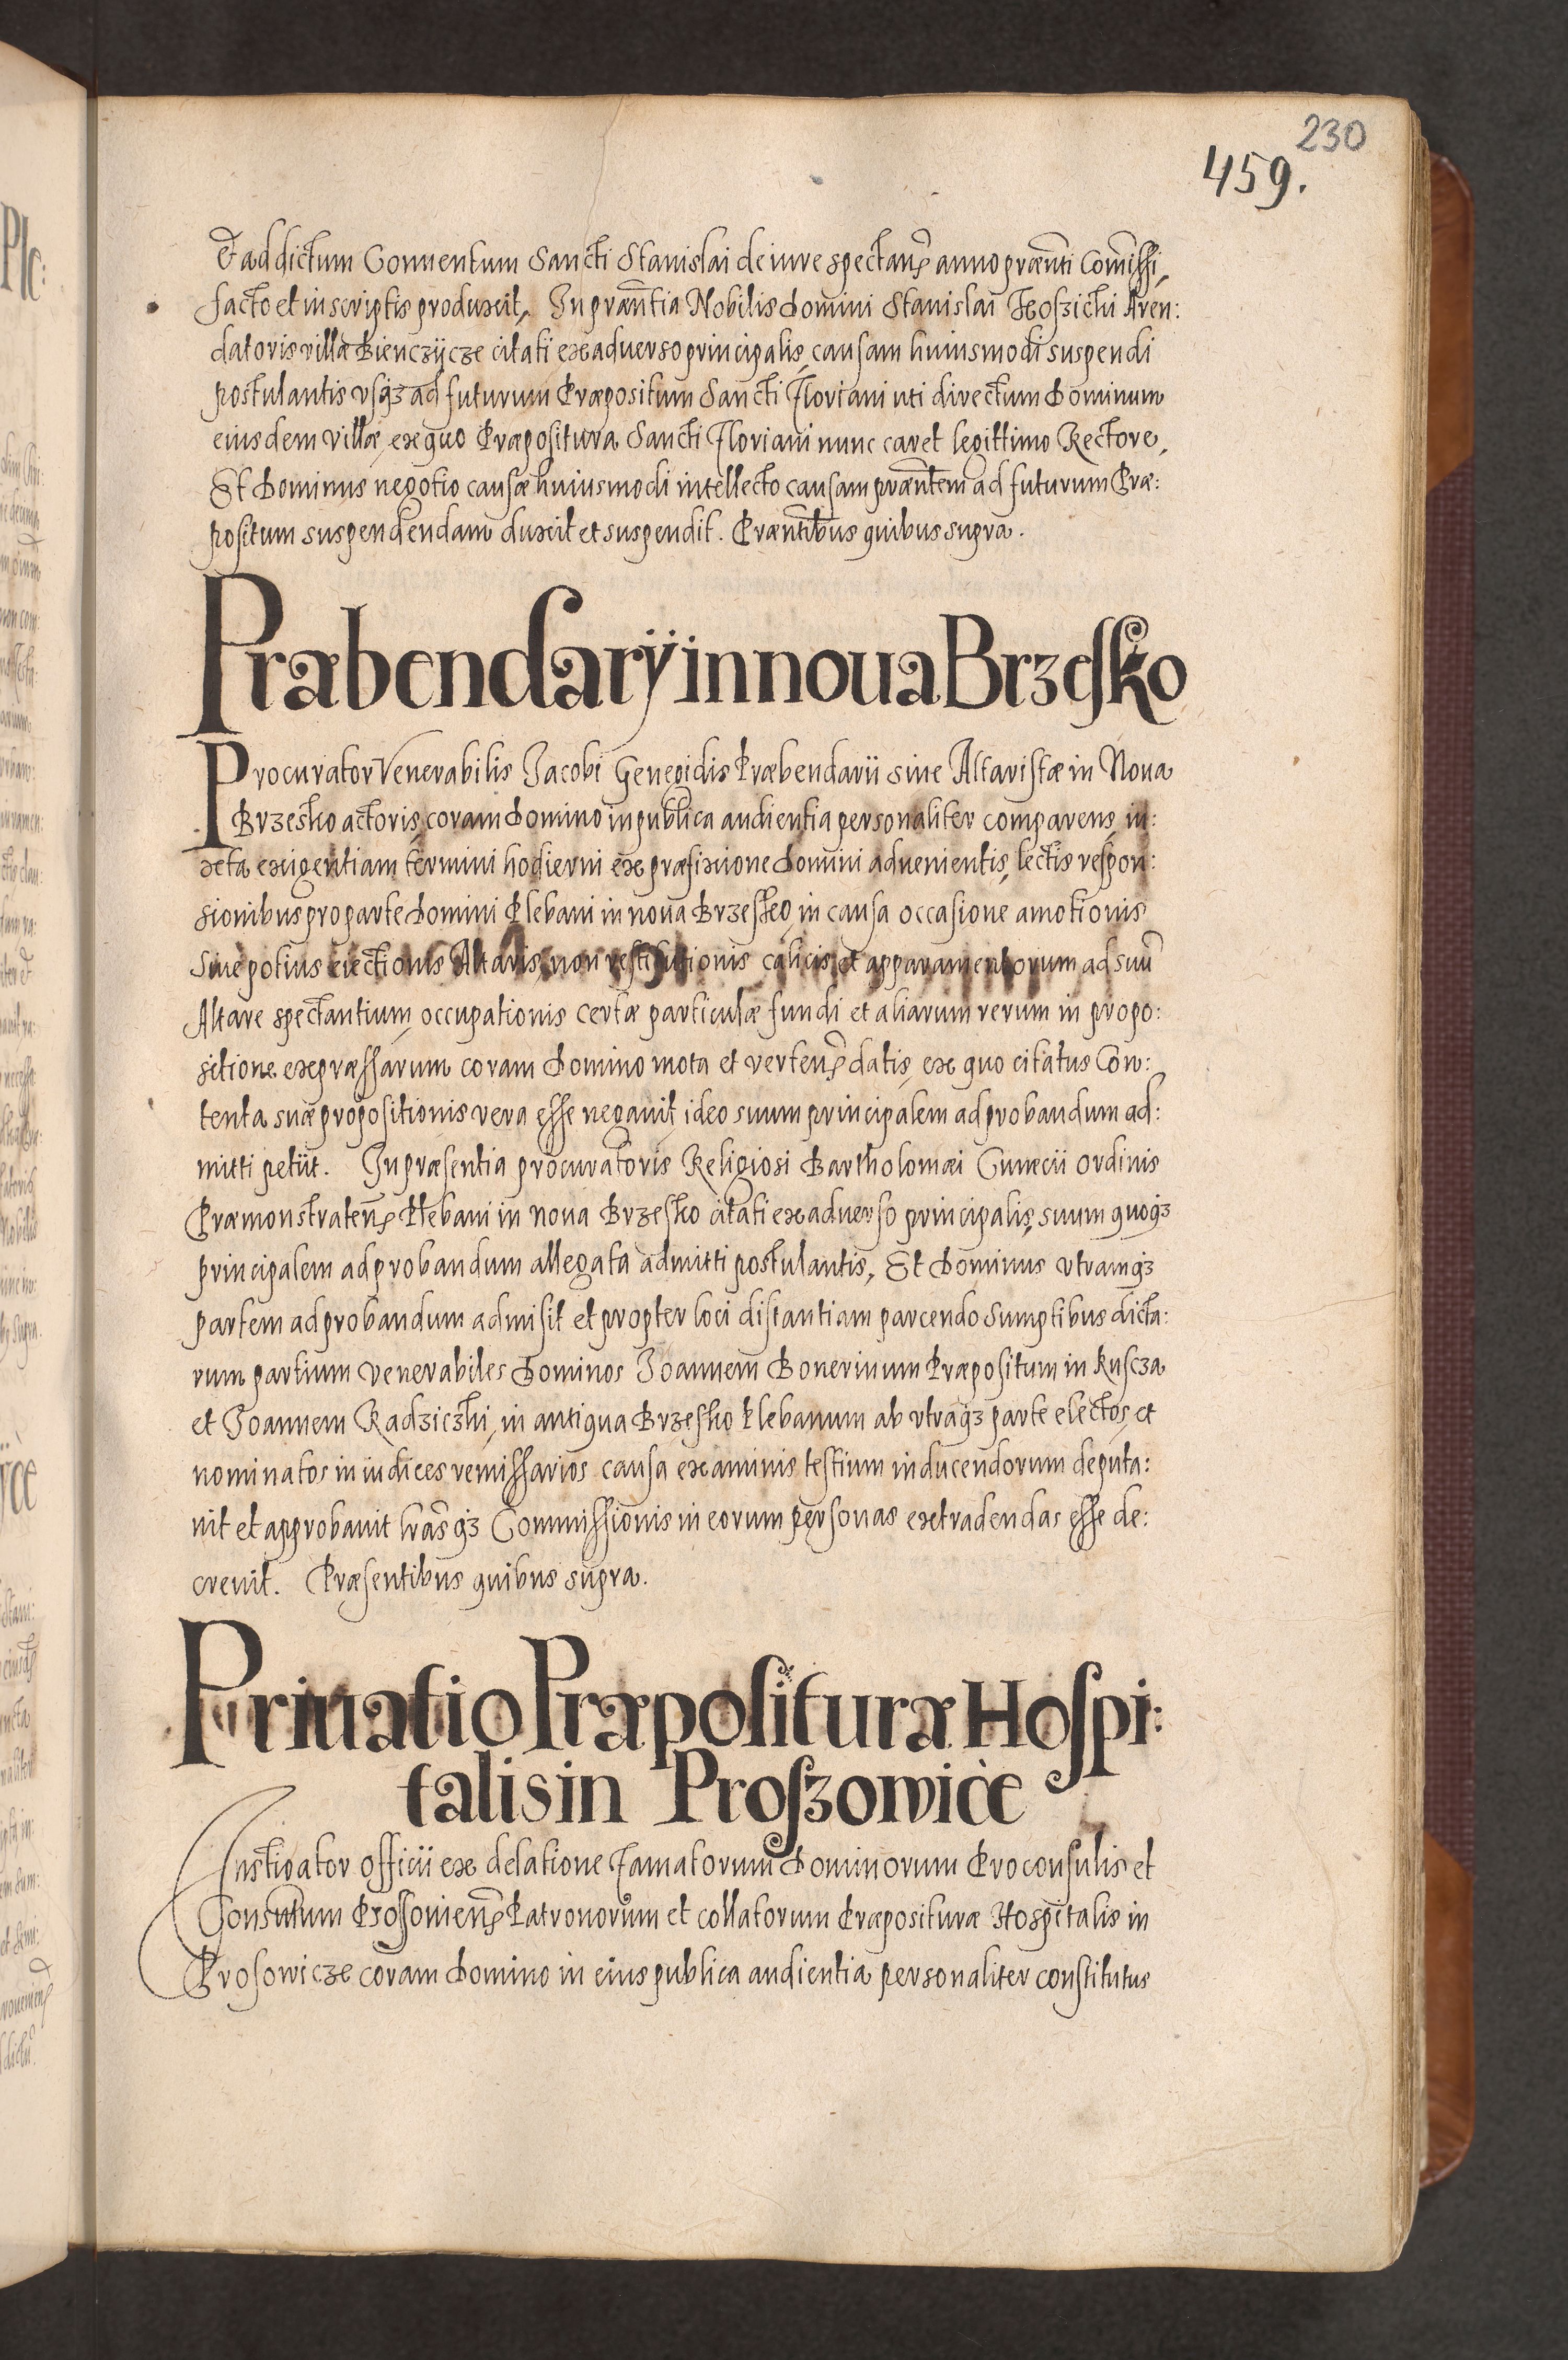 230
459.
Et ad dictum Conuentum Sancti Stanislai de iure spectan̄ anno præn̄ti Com̄issi,
facto et in scriptis produxit, In præn̄tia Nobilis Domini Stanislai Aren:
datoris villæ Bienczÿcze citati ex aduerso principalis, causam huiusmodi suspendi
postulantis vsq3 ad futurum Præpositum Sancti Floriani uti directum Dominum
eiusdem villæ, ex quo Præpositura Sancti Floriani nunc caret legittimo Rectore,
Et Dominus negotio causæ huiusmodi intellecto causam præn̄tem ad futurum Præ:
positum suspendendam duxit et suspendit. Præn̄tibus quibus supra.
Præbendarÿ in noua Brzesko
Procurator Venerabilis Jacobi Genegidis Præbendarii siue Altaristæ in Noua
Brzesko actoris, coram Domino in publica audientia personaliter comparens, in:
xta exigentiam termini hodierni ex præfixione Domini aduenientis, lectis respon:
sionibus pro parte Domini Plebani in noua Brzesko, in causa occasione amotionis
siue potius eiectionis Altaris, non restitutionis calicis et apparamentorum ad suū
Altare spectantium, occupationis certæ particulæ fundi et aliarum rerum in propo:
sitione expræssarum coram Domino mota et verten̄ datis, ex quo citatus Con:
tenta suæ propositionis vera esse negauit, ideo suum principalem ad probandum ad:
mitti petiit. In præsentia procuratoris Religiosi Bartholomæi Cunecii ordinis
Præmonstraten̄ Plebani in noua Brzesko citati ex aduerso principalis, suum quoq3
principalem ad probandum allegata admitti postulantis, Et Dominus vtramq3
partem ad probandum admisit et propter loci distantiam parcendo sumptibus dicta:
rum partium venerabiles Dominos Joannem Bonerinum Præpositum in Kuscza
et Joannem Radziczki, in antiqua Brzesko Plebanum ab vtraq3 parte electos, et
nominatos in iudices remissarios causa examinis testium inducendorum deputa:
uit et approbauit lrās q3 Commissionis in eorum personas extradendas esse de:
creuit. Præsentibus quibus supra.
Priuatio Præpositura Hospi:
talis in Proszowice
Instigator officii ex delatione Famatorum Dominorum Proconsulis et
Consulum Prossouien̄ Patronorum et collatorum Præpositura Hospitalis in
Prosowicze coram Domino in eius publica audientia personaliter constitutus